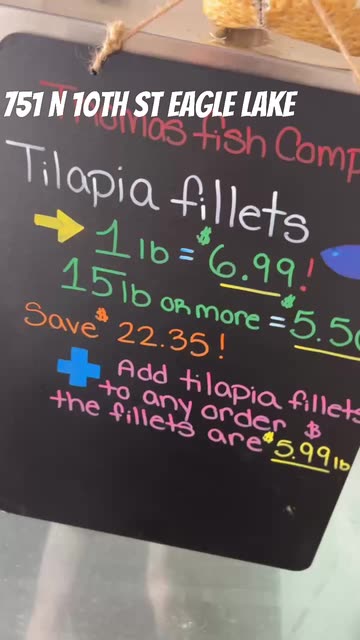 751 N 10TH ST EAGLE LAKE
Thomas fish Comp
Tilapia fillets
1 lb = $6.99!
15 lb or more = $5.50
Save $22.35!
Add tilapia fillets
to any order $
the fillets are $5.99 lb